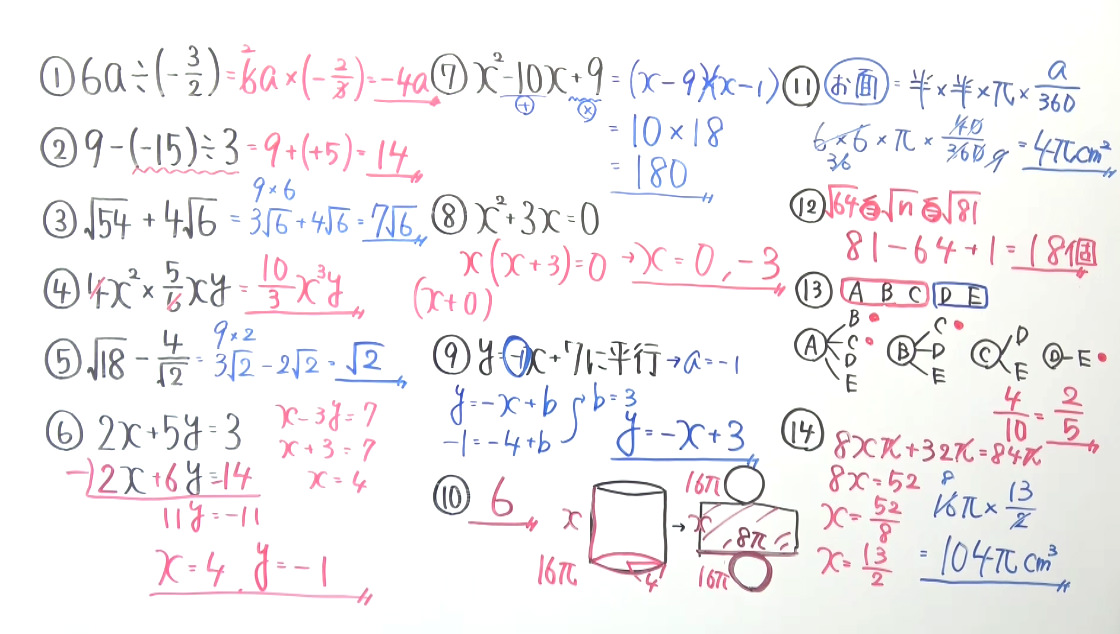 ① 6a÷(-3/2)=6a×(-2/3)=-4a
2
② 9-(-15)÷3=9+(+5)=14
9×6
③ √54+4√6=3√6+4√6=7√6
④ 4x²×5/6xy=10/3x³y
9×2
⑤ √18-4/√2=3√2-2√2=√2
⑥ 2x+5y=3
-)2x+6y=14
11y=-11
x-3y=7
x+3=7
x=4
x=4, y=-1
⑦ x²-10x+9=(x-9)(x-1)
⊕ ⊗
=10×18
=180
⑧ x²+3x=0
x(x+3)=0→x=0,-3
(x+0)
⑨ y=-1x+7に平行→a=-1
y=-x+b
-1=-4+b
b=3
y=-x+3
⑩ 6
x
16π
4
→
16π
x
8π
16π
⑪ お面=半×半×π×a/360
6×6×π×40/360=4πcm²
36
9
⑫ √64≦√n≦√81
81-64+1=18個
⑬ A B C D E
A B C D E
B C D E
C D E
D-E
4/10=2/5
⑭ 8xπ+32π=84π
8x=52
x=52/8
x=13/2
8
16π×13/2
=104πcm³